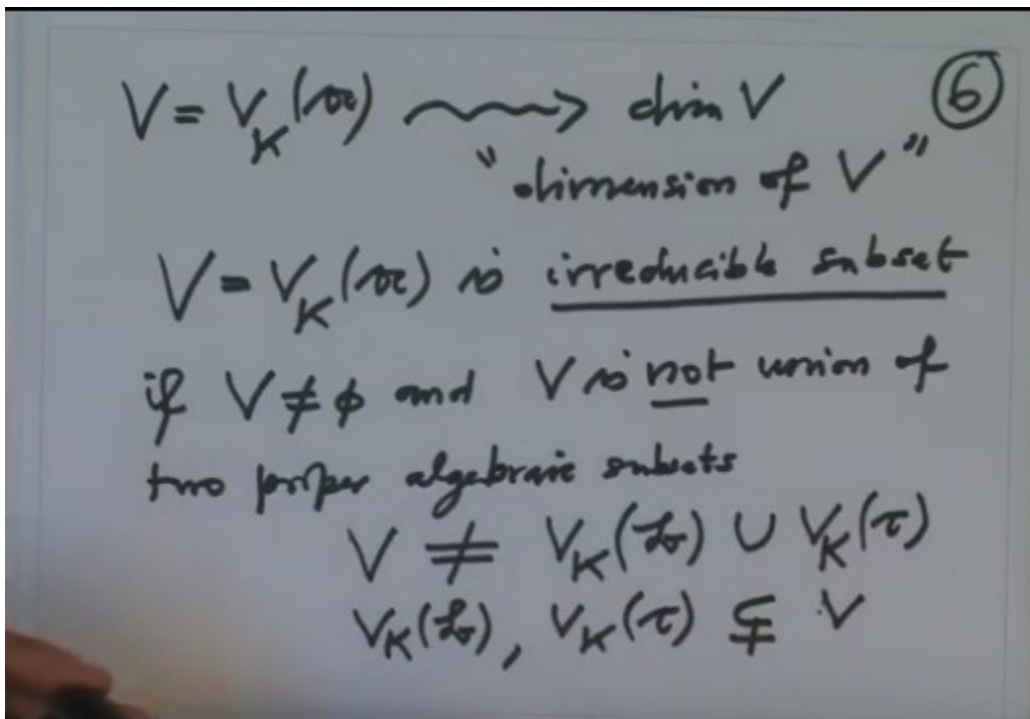 V = V_K(𝔞) ⇝ dim V ⑥
"dimension of V"
V = V_K(𝔞) is irreducible subset
if V ≠ ϕ and V is not union of
two proper algebraic subsets
V ≠ V_K(𝔟) ∪ V_K(𝔠)
V_K(𝔟), V_K(𝔠) ⊊ V